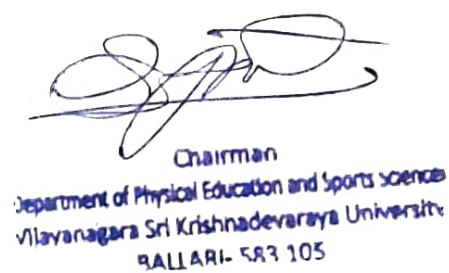 Chairman
Department of Physical Education and Sports Sciences
Vijayanagara Sri Krishnadevaraya University
BALLARI- 583 105